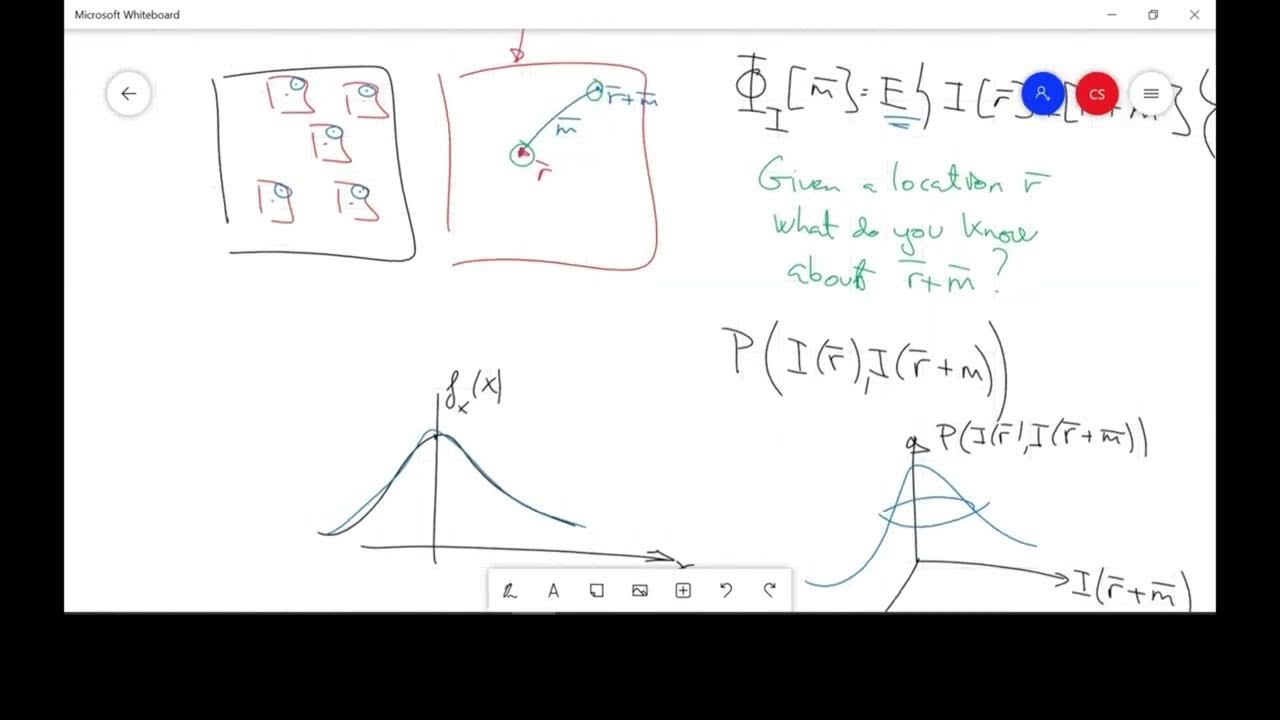 Microsoft Whiteboard
Φ_I [m̅] = E{ I[r̅]
CS
+m̅]}
r̅+m̅
m̅
r̅
Given a location r̅
what do you know
about r̅+m̅ ?
P(I(r̅), I(r̅+m))
f_x(x)
P(I(r̅), I(r̅+m̅))
A
I(r̅+m̅)